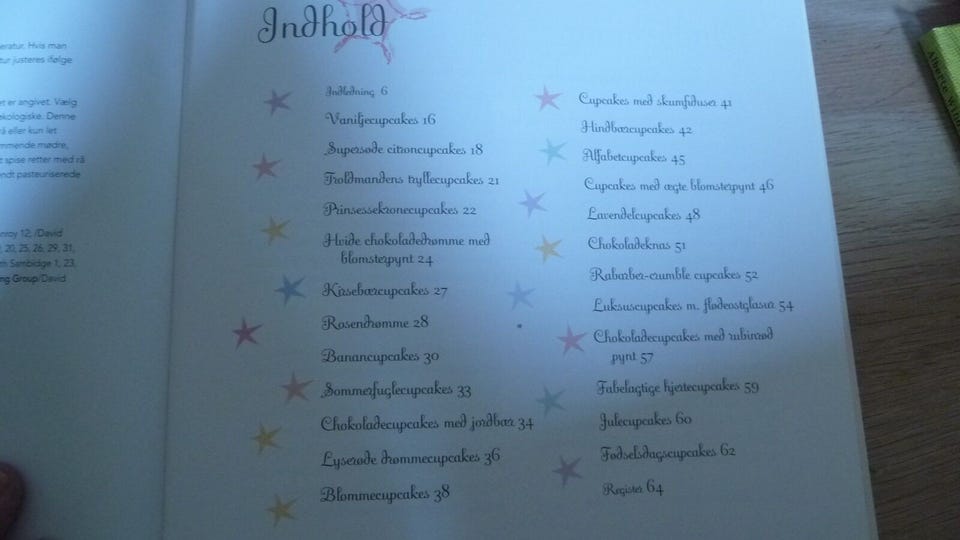 eratur. Hvis man
tur justeres ifølge
et er angivet. Vælg
økologiske. Denne
rå eller kun let
mmende mødre,
t spise retter med rå
endt pasteuriserede
nroy 12; /David
, 20, 25, 26, 29, 31,
th Sambidge 1, 23,
ng Group/David
Indhold
Indledning 6
Vaniljecupcakes 16
Supersøde citroncupcakes 18
Troldmandens tryllecupcakes 21
Prinsessekronecupcakes 22
Hvide chokoladedrømme med
blomsterpynt 24
Kirsebærcupcakes 27
Rosendrømme 28
Banancupcakes 30
Sommerfuglecupcakes 33
Chokoladecupcakes med jordbær 34
Lyserøde drømmecupcakes 36
Blommecupcakes 38
Cupcakes med skumfiduser 41
Hindbærcupcakes 42
Alfabetcupcakes 45
Cupcakes med ægte blomsterpynt 46
Lavendelcupcakes 48
Chokoladeknas 51
Rabarber-crumble cupcakes 52
Luksuscupcakes m. flødeostglasur 54
Chokoladecupcakes med rubinrød
pynt 57
Fabelagtige hjertecupcakes 59
Julecupcakes 60
Fødselsdagscupcakes 62
Register 64